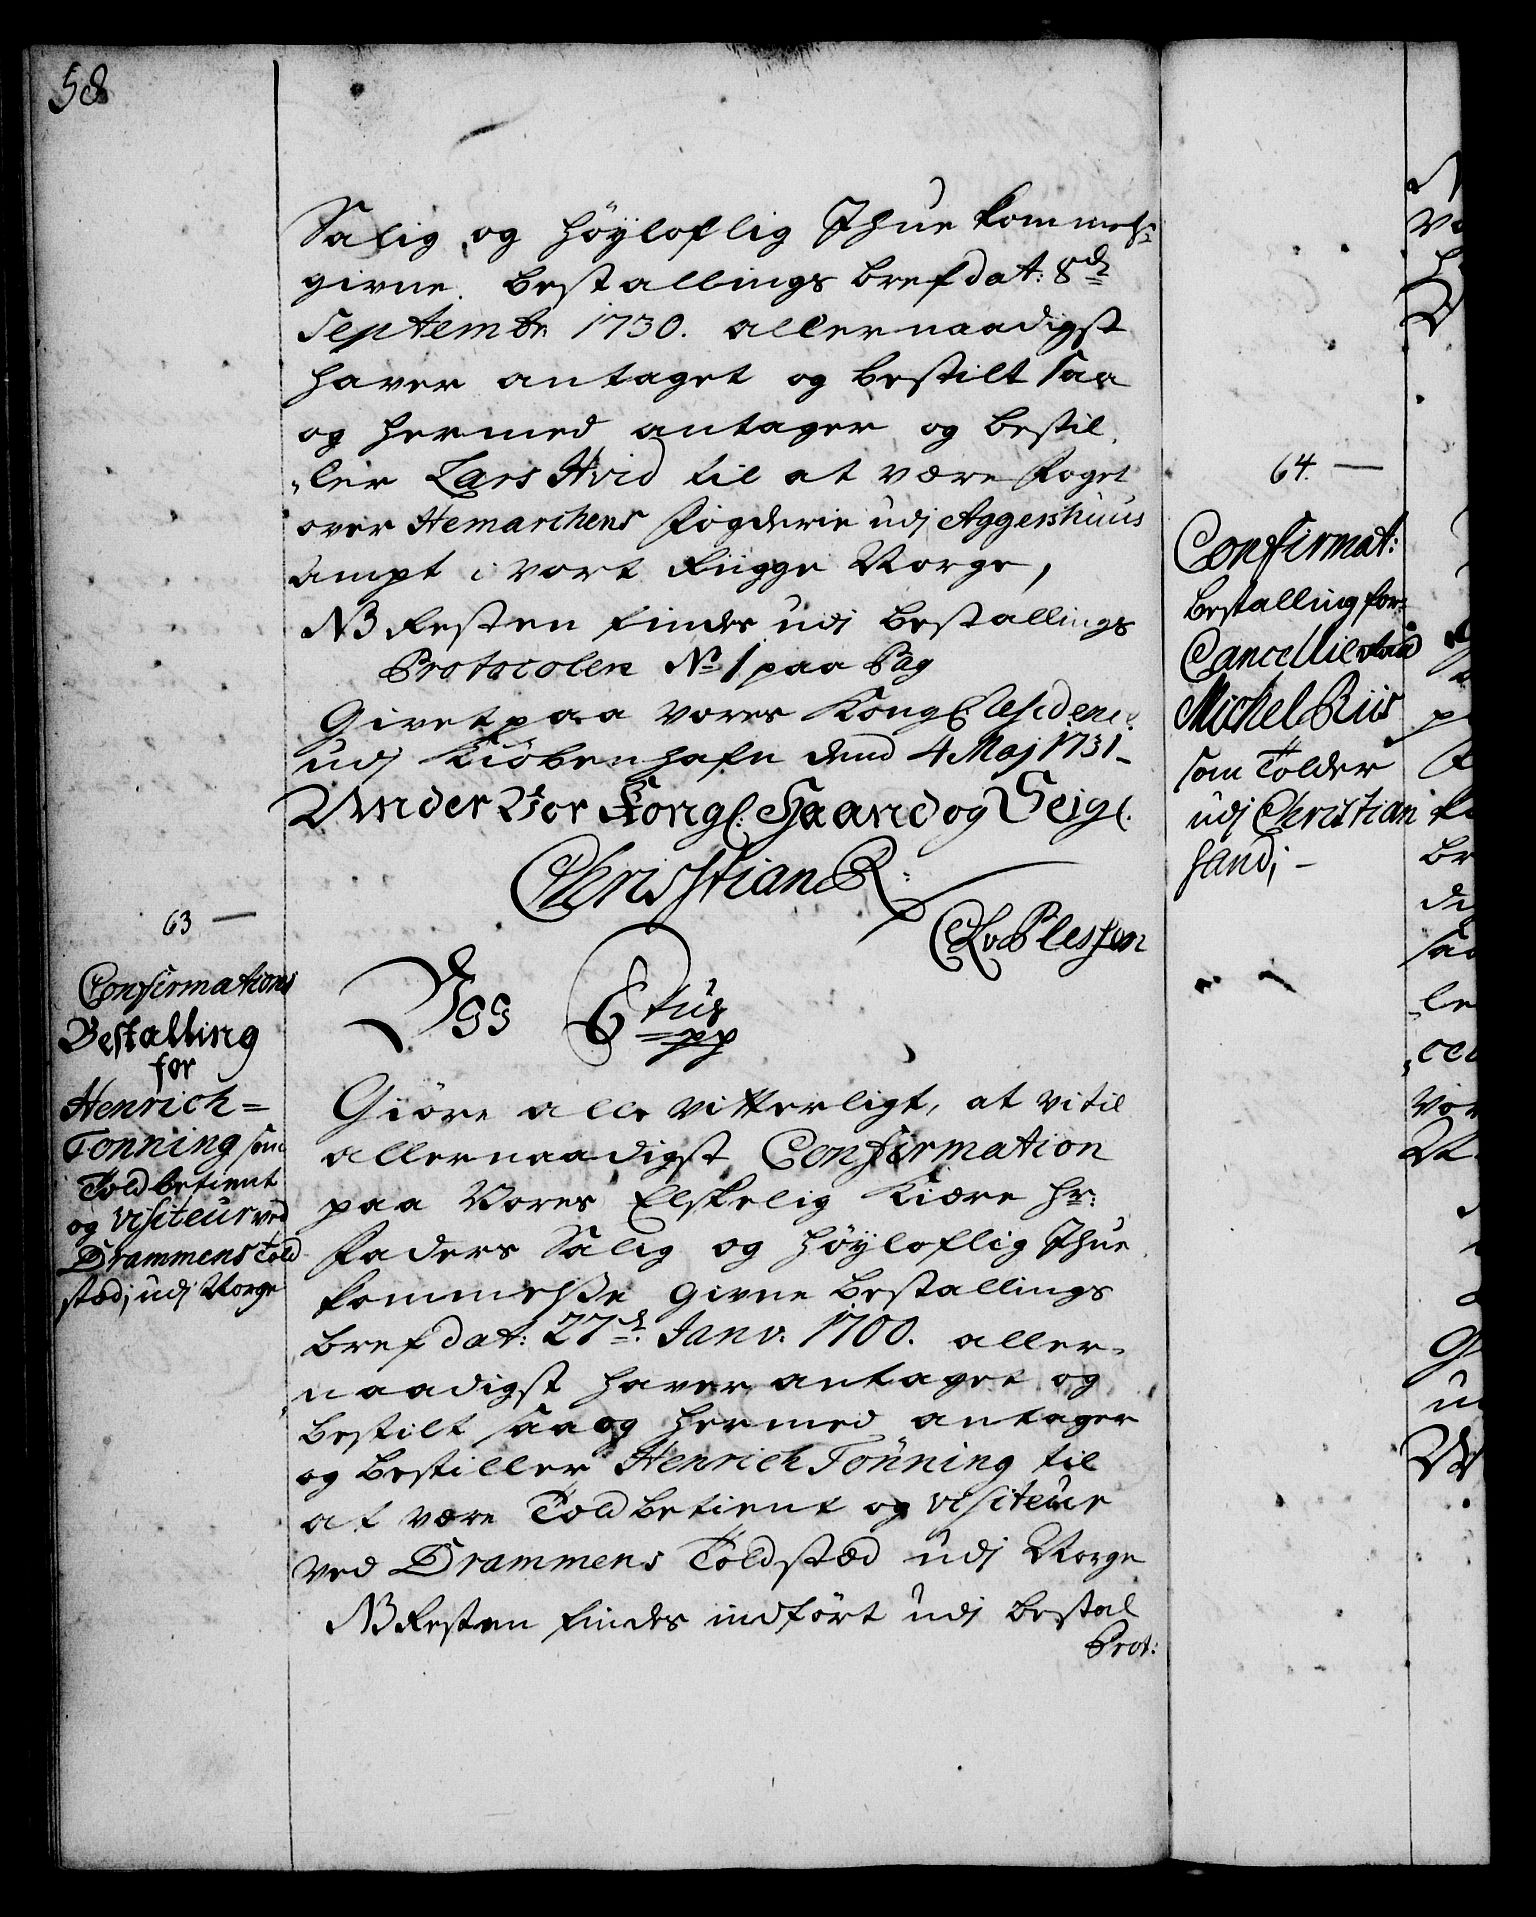 58
Salig og höyloflig Ihue kommelse
givne bestallings bref dat: 8de
Septembr 1730. allernaadigst
haver antaget og bestilt saa
og hermed antager og bestil
„ler Lars Hvid til at være foget
over Hemarchens fögderie udj Aggershuus
ampt i vort Riigge Norge,
NB Resten findes udi bestallings
Protocolen No 1 paa Pag
Givet paa vores Kongl: Residence
udj Kiöbenhafn dend 4 Maj 1731-
Under Vor Kongl: Haand og Seigl.
Christian R:
CAvPlessen
63 —
Confirmations
Bestalling
for
Henrich=
Tonning som
Told betient
og Visiteur ved
Drammens Told
stæd; udj Norge
Dss CVItus
pp
Giöre alle vitterligt, at vi til
allernaadigst Confirmation
paa Vores Elskelig Kiære Hr:
Faders Salig og höyloflig Ihue
kommelsse givne bestallings
bref dat: 27de Janv: 1700. aller-
„naadigst haver antaget og
bestilt saa og hermed antager
og bestiller Henrich Tönning til
at være Told betient og visiteur
ved Drammens Toldstæd udj Norge
NB Resten findes indfört udj bestal
Prot:
64. —
Confirmat:
bestalling for=
Cancellieraad
Michel Riis
som Tolder
udj Christian
sand; –